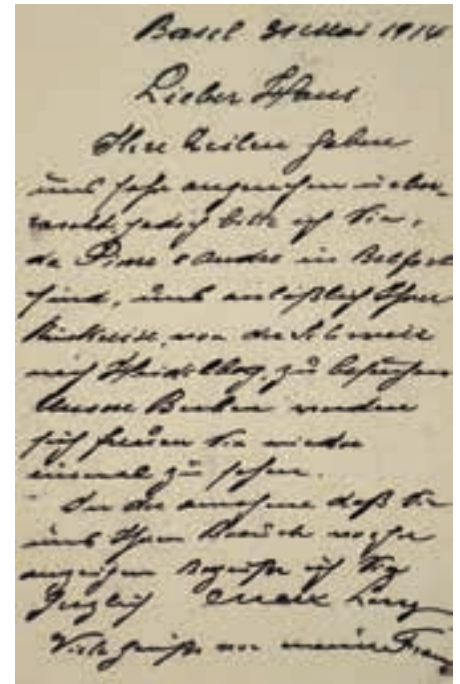 Basel 31 Mai 1914
Lieber Hans
Ihre Zeilen haben
uns sehr angenehm über-
rascht, jedoch bitte ich Sie,
da Pierre & André in Belfort
sind, uns anläßlich Ihrer
Rückreise, von der Schweiz
nach Heidelberg, zu besuchen
Unsere Buben werden
sich freuen Sie wieder
einmal zu sehen.
In der annahme daß Sie
uns Ihren Besuch vorher
anzeigen begrüße ich Sie
Max
Viele grüße von meiner Frau